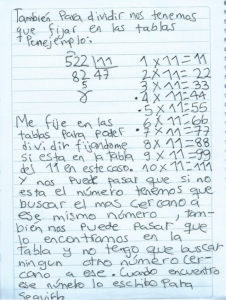 También Para dividir nos tenemos
que fijar en las tablas
Por ejemplo:
522 | 11    1 x 11 = 11
82   47    2 x 11 = 22
5    3 x 11 = 33
4 x 11 = 44
5 x 11 = 55
Me fije en las 6 x 11 = 66
tablas Para poder 7 x 11 = 77
dividir fijandome 8 x 11 = 88
si esta en la tabla 9 x 11 = 99
del 11 en este caso. 10 x 11 = 111
Y nos Puede Pasar que si no
esta el número tenemos que
buscar el mas cercano a
ese mismo número, tam-
bién nos Puede Pasar que
lo encontramos en la
tabla y no tengo que buscar
ningun otro número cer-
cano a ese. Cuando encuentro
ese número lo escribo Para
seguirlo